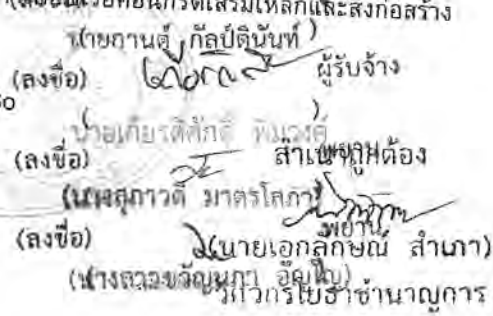 คอนกรีตเสริมเหล็กและสิ่งก่อสร้าง
นายกานต์ กัลป์ตินันท์)
(ลงชื่อ) ผู้รับจ้าง
นายเกียรติศักดิ์ พิมวงค์
(ลงชื่อ) พยาน สำเนาถูกต้อง
(นางสุภาวดี มาตรโสภา)
(ลงชื่อ) พยาน
(นายเอกลักษณ์ สำเภา)
(นางสาวขวัญนภา
วิศวกรโยธาชำนาญการ